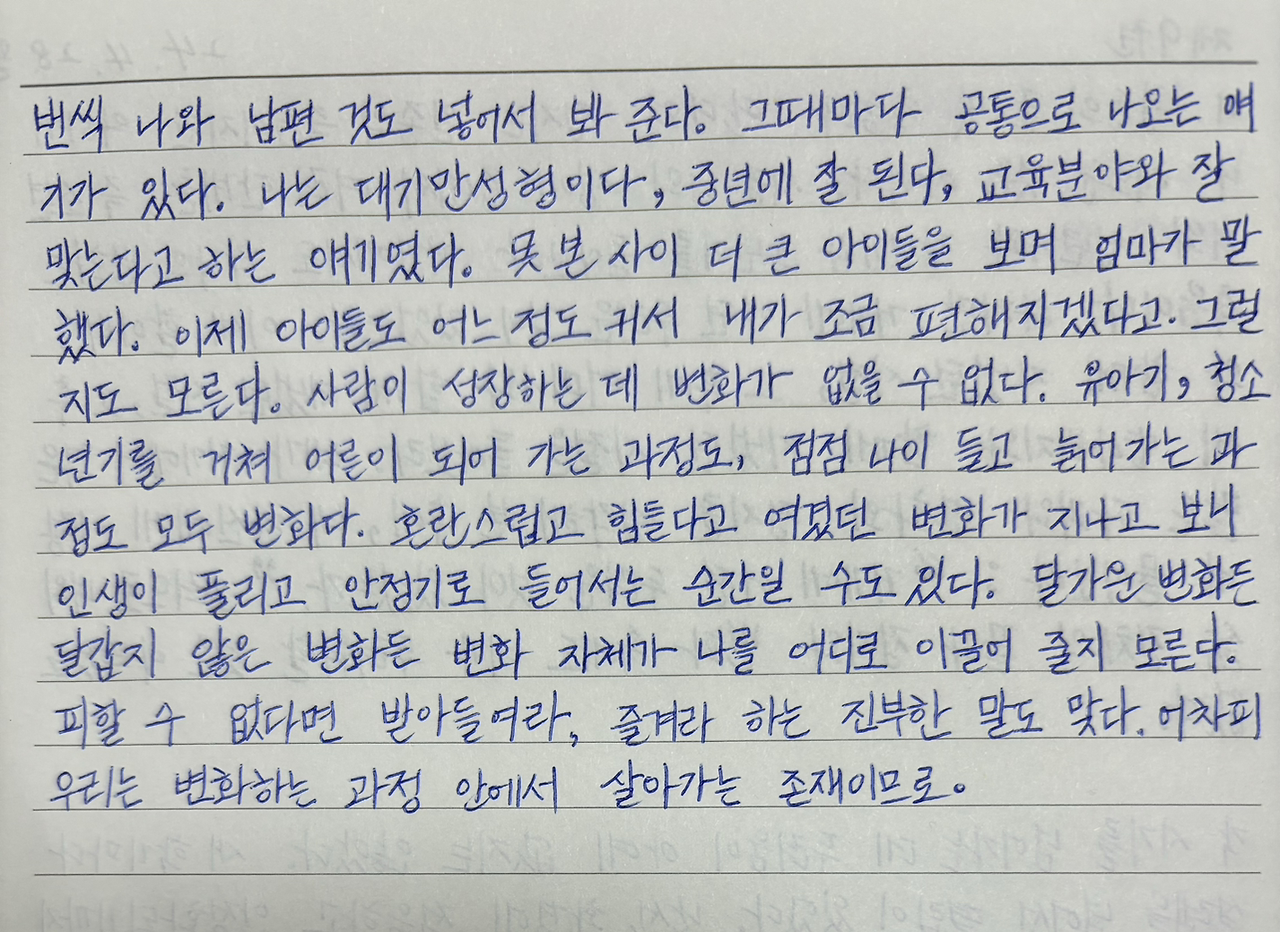 번씩 나와 남편 것도 넣어서 봐 준다. 그때마다 공통으로 나오는 얘
기가 있다. 나는 대기만성형이다, 중년에 잘 된다, 교육분야와 잘
맞는다고 하는 얘기였다. 못 본 사이 더 큰 아이들을 보며 엄마가 말
했다. 이제 아이들도 어느 정도 커서 내가 조금 편해지겠다고. 그럴
지도 모른다. 사람이 성장하는 데 변화가 없을 수 없다. 유아기, 청소
년기를 거쳐 어른이 되어 가는 과정도, 점점 나이 들고 늙어가는 과
정도 모두 변화다. 혼란스럽고 힘들다고 여겼던 변화가 지나고 보니
인생이 풀리고 안정기로 들어서는 순간일 수도 있다. 달가운 변화든
달갑지 않은 변화든 변화 자체가 나를 어디로 이끌어 줄지 모른다.
피할 수 없다면 받아들여라, 즐겨라 하는 진부한 말도 맞다. 어차피
우리는 변화하는 과정 안에서 살아가는 존재이므로.